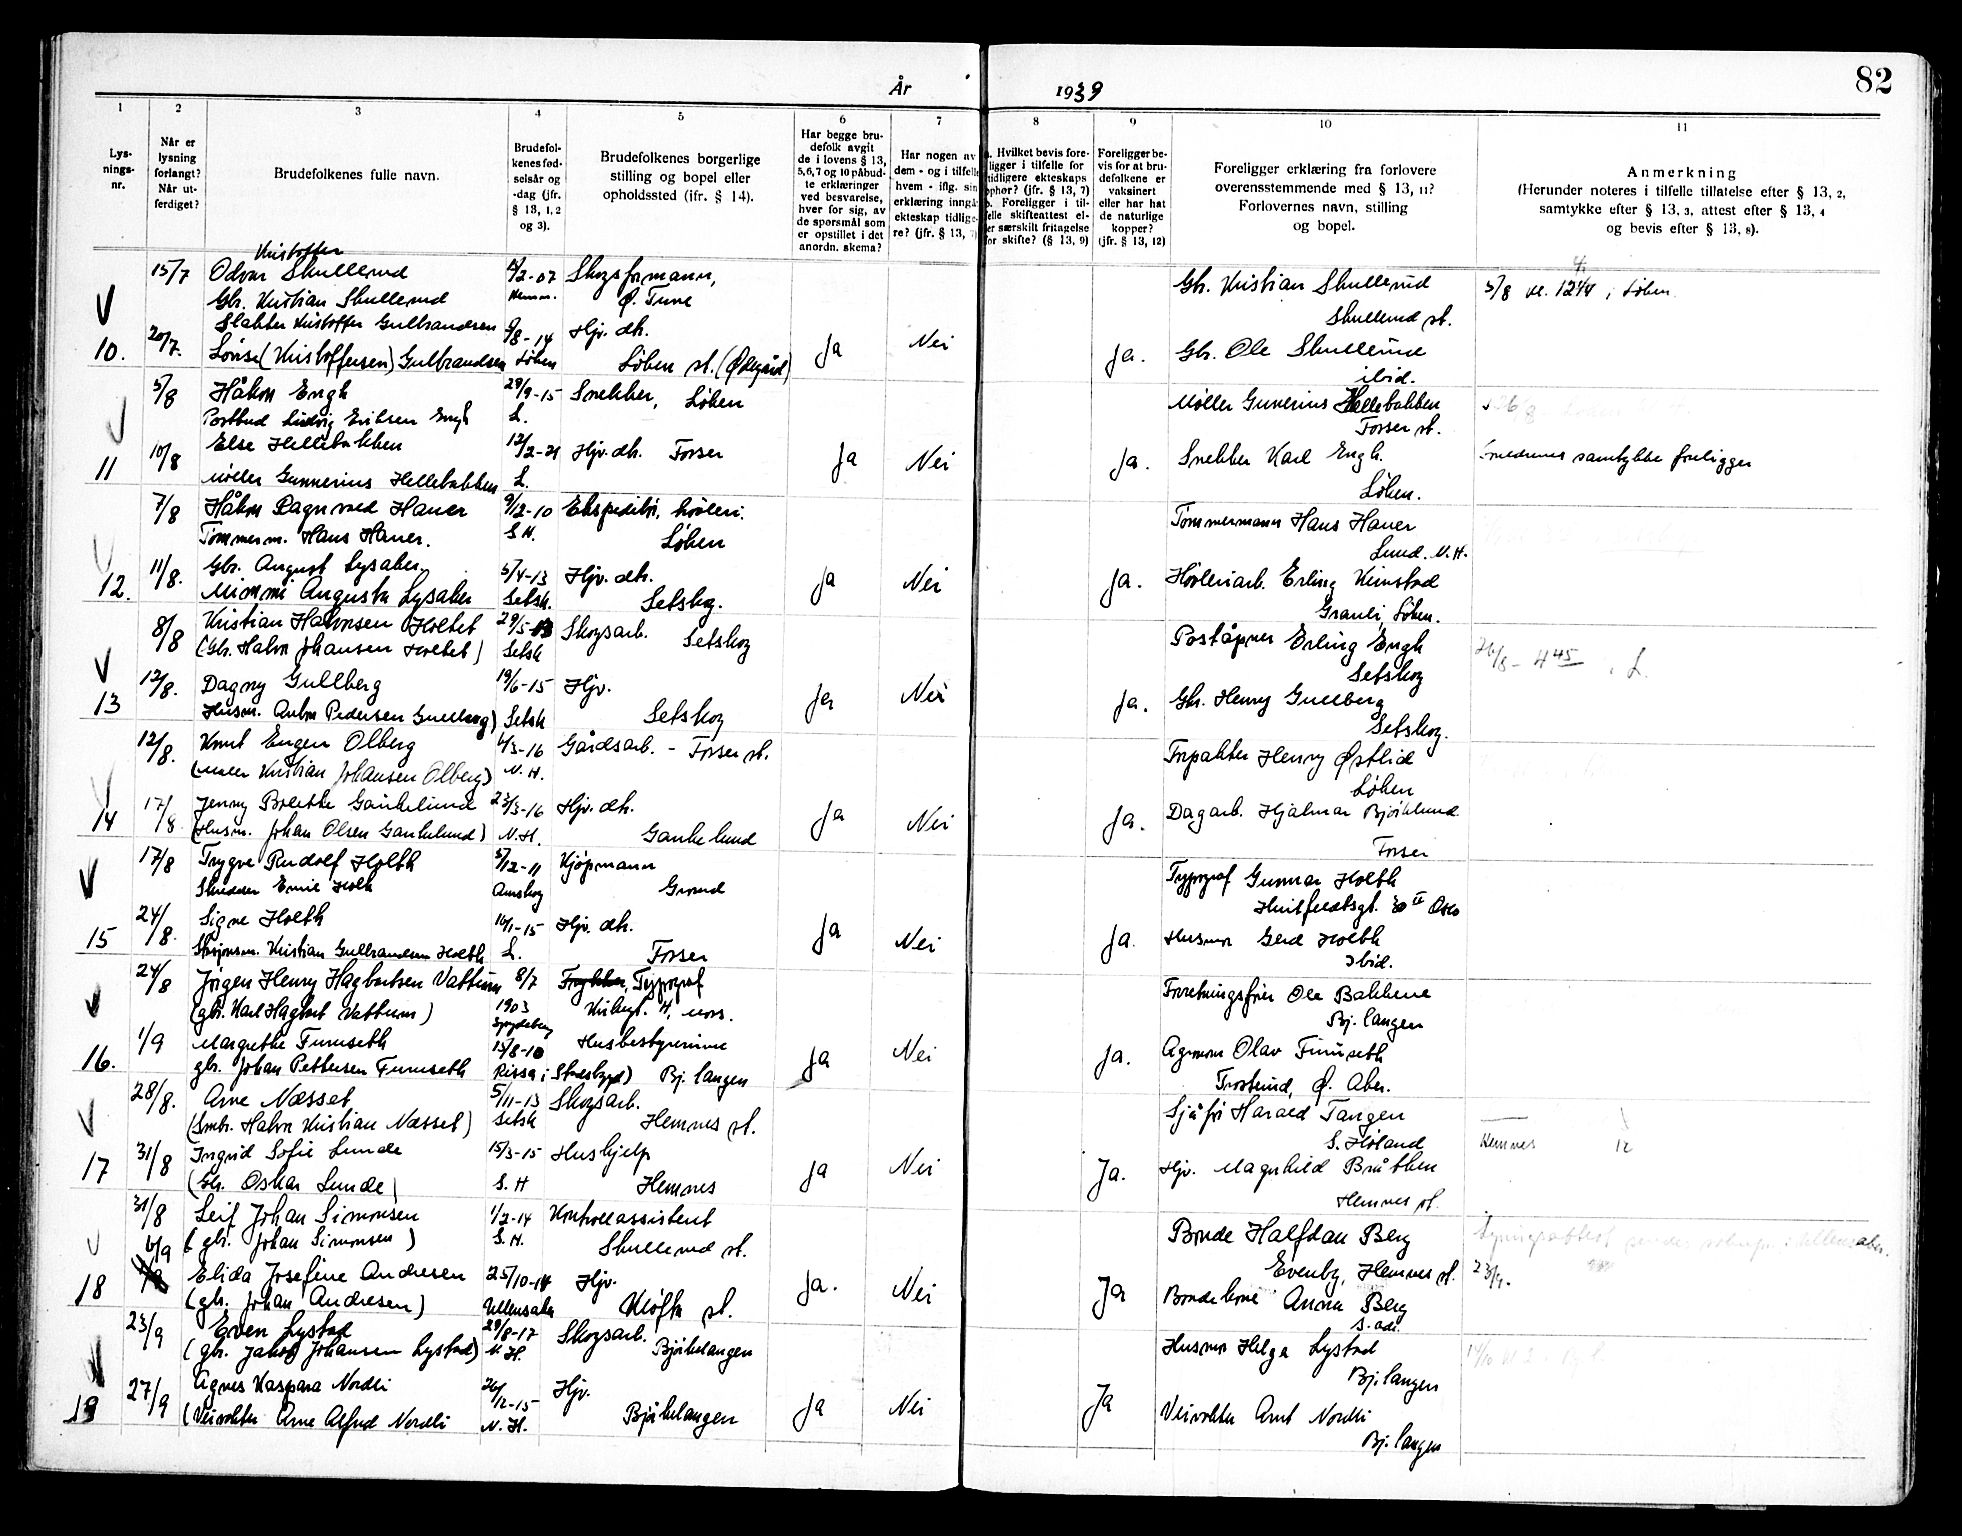 82
År 1939
1 2 3 4 5 6 7 8 9 10 11
Lys-
nings-
nr.
Når er
lysning
forlangt?
Når ut-
ferdiget?
Brudefolkenes fulle navn.
Brudefol-
kenes fød-
selsår og
-dag (jfr.
§ 13, 1, 2
og 3).
Brudefolkenes borgerlige
stilling og bopel eller
opholdssted (ifr. § 14).
Har begge bru-
defolk avgit
de i lovens § 13,
5, 6, 7 og 10 påbud-
te erklæringer
ved besvarelse,
hver for sig, av
de spørsmål som
er opstillet i det
anordn. skema?
Har nogen av
dem - og i tilfelle
hvem - iflg. sin
erklæring inngå
ekteskap tidlige-
re? (jfr. § 13, 7
a. Hvilket bevis fore-
ligger i tilfelle for
tidligere ekteskaps
ophør? (jfr. § 13, 7)
b. Foreligger i til-
felle skifteattest el-
ler særskilt fritagelse
for skifte? (§ 13, 9)
Foreligger be-
vis for at bru-
defolkene er
vaksinert
eller har hat
de naturlige
kopper?
(jfr. § 13, 12)
Foreligger erklæring fra forlovere
overensstemmende med § 13, 11?
Forlovernes navn, stilling
og bopel.
Anmerkning
(Herunder noteres i tilfelle tillatelse efter § 13, 2,
samtykke efter § 13, 3, attest efter § 13, 4
og bevis efter § 13, 8).
Kristoffer
15/7 Odvar Skullerud 2-07 Skogsformann,
Gbr. Kristian Skullerud Hemn. Ø. Tune
Gbr. Kristian Skullerud
Skullerud st.
5/8 kl. 12 1/4 i Løken
Slakter Kristoffer Gulbrandsen
10. 20/7. Lovise (Kristoffersen) Gulbrandsen 8-14 Løken Hjv. dtr.
Løken st. (Ødegård) Ja Nei Ja. Gbr. Ole Skullerud
ibid.
5/8 Håkon Engh 29/9-15 Snekker, Løken
Postbud Ludvig Eriksen Engh L.
Møller Gunerius Hellebakken
Forser st.
26/8
11 10/8 Else Hellebakken 12/2-21 Hjv. dtr. Forser Ja Nei Ja. Snekker Karl Engh.
Møller Gunnerius Hellebakken L.
Løken.
samtykke foreligger
7/8 Håkon Ragnvald Haner 9/12-10 Ekspeditør, høvleri.
Tømmerm. Hans Haner. S.H. Løken
Tømmermann Hans Haner
Lund. N.H.
12. 11/8. Gbr. August Lysaker 5/4-13 Hjv. dtr. Ja Nei Ja.
Mimmi Augusta Lysaker Setsk. Setskog.
Høvleriarb. Erling Kinstad
Granli, Løken.
8/8 Kristian Halvorsen Holtet 29/5-13 Skogsarb.
(Gbr. Halvor Johansen Holtet) Setsk Setskog
Poståpner Erling Engh
Setskog
26/8 - 4 45 i L.
13 12/8. Dagny Gullberg 19/6-15 Hjv. Ja Nei Ja. Gbr. Henry Gullberg
Husm. Anton Pedersen Gullberg) Setsk Setskog
Setskog.
12/8. Knut Eugen Olberg 3-16 Gårdsarb. - Forser st.
(Møller Kristian Johansen Olberg) N.H.
Forpakter Henry Østlid
Løken
14 17/8 Jenny Borette Gankelund 23/3-16 Hjv. dtr. Ja Nei Ja. Dagarb. Hjalmar Bjørklund
(Husm. Johan Olsen Gankelund) N.H. Gankelund
Forser
17/8 Trygve Rudolf Holth 5/12-11 Kjøpmann
Skredder Emil Holth Aurskog Grond
Typograf Gunnar Holth
Huitfeldtsgt. II Oslo
15 24/8. Signe Holth 1-15 Hjv. dtr. Ja Nei Ja. Husmor Gerd Holth
Kristian Gulbrandsen Holth L. Forser
Ibid.
24/8 Jørgen Henry Hagbartsen Vattum 8/7 Typograf
(gbr. Karl Hagbart Vattum) 1903
Spydeberg
Kirkegt. 4, Moss.
Forretningsfører Ole Bakkene
Bj. langen
16. 1/9 Margrethe Furuseth 15/8-10 Husbestyrerinne Ja Nei Ja. Agronom Olav Furuseth
gbr. Johan Pettersen Furuseth Rissa i Stadsbygd) Bj. langen
Trosterud, Ø. Aker.
28/8. Arne Næsset 5/11-13 Skogsarb.
(Smbr. Halvor Kristian Næsset) Setsk Hemnes st.
Sjåfør Harald Tangen
S. Høland
Hemnes 12
17 31/8 Ingrid Sofie Lunde 15/3-15 Hushjelp Ja Nei Ja. Hjv. Magnhild Bråthen
(Gbr. Oskar Lunde) S.H Hemnes
Hemnes st.
31/8 Leif Johan Simonsen 1/2-14 Kontrollassistent
(gbr. Johan Simonsen) S.H. Skullerud st.
Bonde Halfdan Berg
Evenby, Hemnes st.
23/9.
18 6/9 Elida Josefine Andresen 25/10-14 Hjv. Ja. Nei Ja Bondekone Anna Berg
(gbr. Johan Andresen) Ullensaker Kløfta st.
S. ad.
23/9 Even Lystad 29/8-17 Skogsarb.
(gbr. Jakob Johansen Lystad) N.H. Bjørkelangen
Husmor Helga Lystad
Bj. langen
19 27/9 Agnes Kaspara Nordli 26/12-15 Hjv. Ja Nei Ja
(Veivokter Arne Alfred Nordli N.H. Bjørkelangen
Veivokter Arnt Nordli
Bj. langen